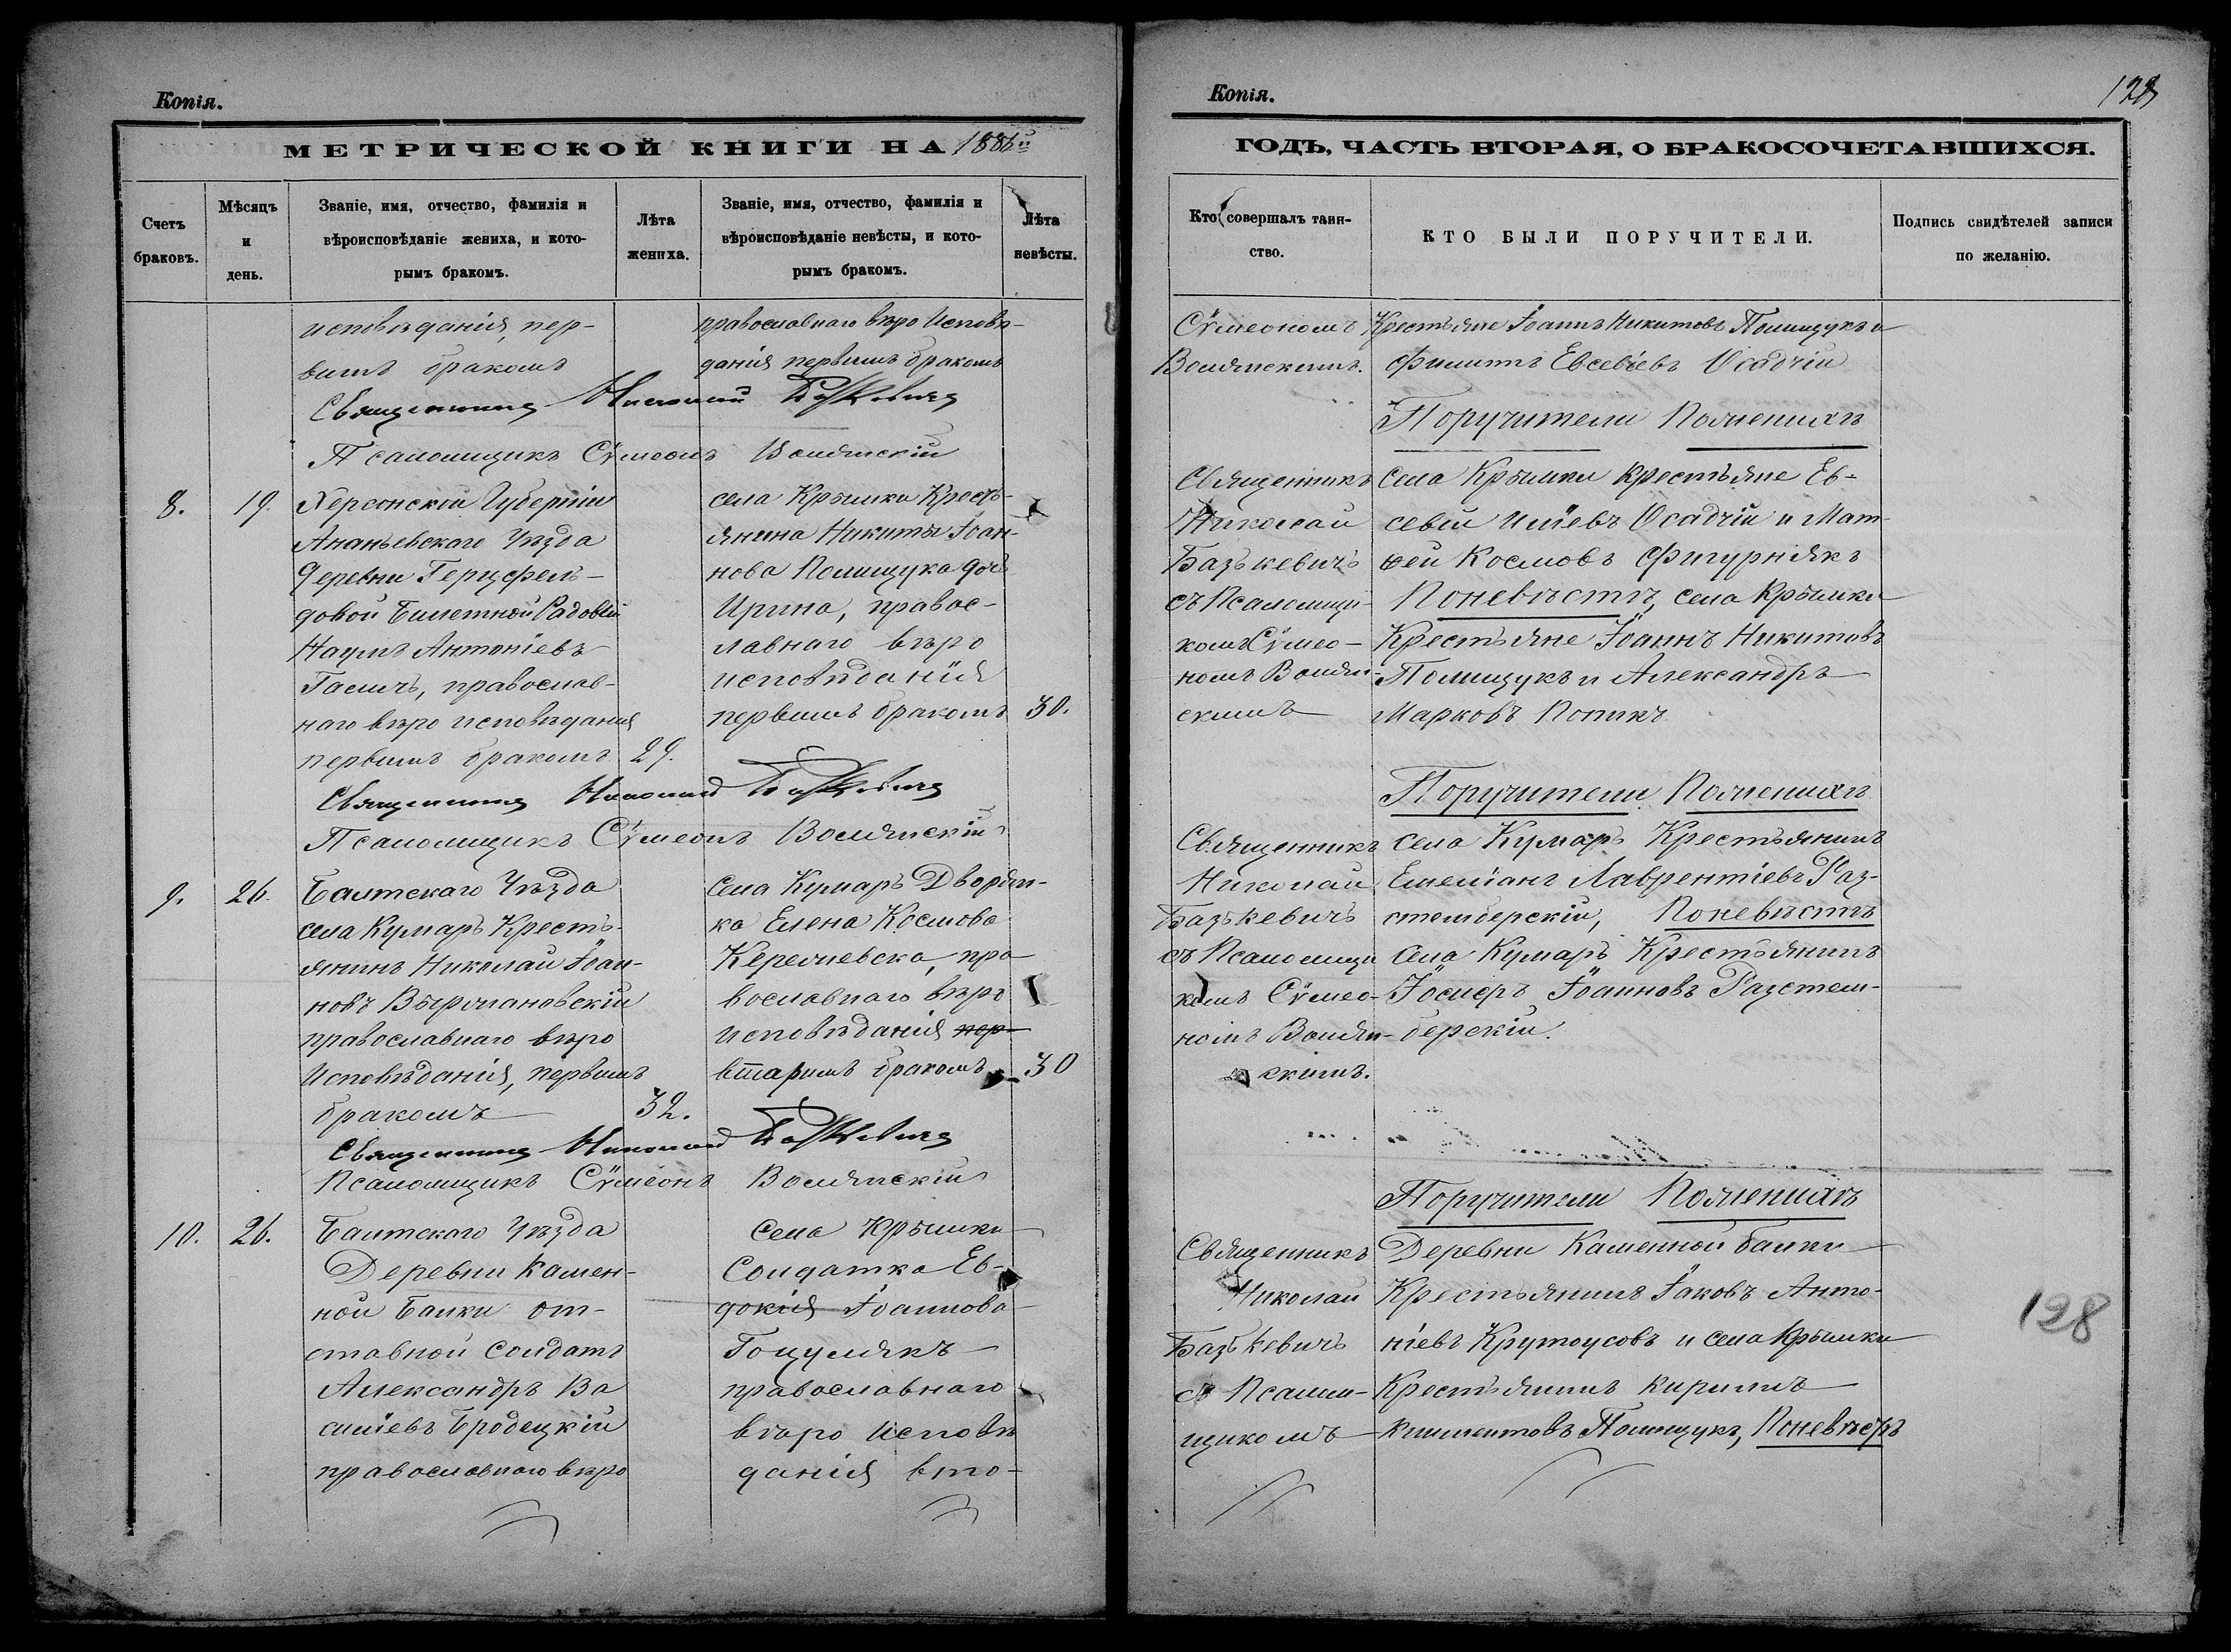 Копія.
МЕТРИЧЕСКОЙ КНИГИ НА 1886й
Счетъ браковъ.
Мѣсяцъ и день.
Званіе, имя, отчество, фамилія и вѣроисповѣданіе жениха, и которымъ бракомъ.
Лѣта жениха.
Званіе, имя, отчество, фамилія и вѣроисповѣданіе невѣсты, и которымъ бракомъ.
Лѣта невѣсты.
исповѣданія, пер-
вымъ бракомъ
православнаго вѣро Исповѣ-
данія первымъ бракомъ
Священникъ Николай Базькевичъ
Псаломщикъ Сѵмеонъ Волянскій
8.
19.
Херсонской Губерніи
Ананьевскаго Уѣзда
Деревни Герцфель-
довой Билетной Рядовый
Наумъ Антоніевъ
Гасичъ, православ-
наго вѣро исповѣданія
первымъ бракомъ
29.
села Крымки Крест-
янина Никиты Іоан-
нова Полищука дочь
Ирина, правос-
лавнаго вѣро
исповѣданія
первымъ бракомъ
30.
Священникъ Николай Базькевичъ
Псаломщикъ Сѵмеонъ Волянскій
9.
26.
Балтскаго Уѣзда
села Кумаръ Кресть-
янинъ Николай Іоан-
новъ
православнаго вѣро
Исповѣданія, первымъ
бракомъ
32.
Села Кумаръ Дворян-
ка Елена Космова
пра-
вославнаго вѣро
исповѣданія пер-
вторымъ бракомъ
30
Священникъ Николай Базькевичъ
Псаломщикъ Сѵмеонъ Волянскій
10.
26.
Балтскаго Уѣзда
Деревни Камен-
ной Балки от-
ставной Солдатъ
Александръ Ва
силіевъ Бродецкій
православнаго вѣро
Села Крымки
Солдатка Ев-
докія Іоаннова
Гоцулякъ
православнаго
вѣро Исповѣ
данія вто-
Копія.
128
ГОДЪ, ЧАСТЬ ВТОРАЯ, О БРАКОСОЧЕТАВШИХСЯ.
Кто совершалъ таинство.
КТО БЫЛИ ПОРУЧИТЕЛИ.
Подпись свидѣтелей записи по желанію.
Сѵмеономъ
Волянскимъ.
Крестьяне Іоаннъ Никитовъ Полищукъ и
Филиппъ Евсевіевъ Осадчій
Поручители Поженихѣ
Священникъ
Николай
Базькевичъ
съ Псаломщи-
комъ Сѵмео-
номъ Волян-
скимъ
Села Крымки Крестьяне Ев-
севій Иліевъ Осадчій и Мат-
фей Космовъ Фигурнякъ
Поневѣстѣ, села Крымки
Крестьяне Іоаннъ Никитовъ
Полищукъ и Александръ
Марковъ Попикъ
Поручители Поженихѣ
Священникъ
Николай
Базькевичъ
съ Псаломщи
комъ Сѵмео-
номъ Волян-
скимъ.
села Кумаръ Крестьянинъ
Емеліанъ Лаврентіевъ Раз-
стемберскій, Поневѣстѣ
Села Кумаръ Крестьянинъ
Іосифъ Іоанновъ Разстем-
берскій.
Поручители Поженихѣ
Священникъ
Николай
Базькевичъ
съ Псалом-
щикомъ
Деревни Каменной балки
Крестьянинъ Іаковъ Анто-
ніевъ Крутоусовъ и села Крымки
Крестьянинъ Кириллъ
Климентовъ Полищукъ, Поневѣстѣ
128